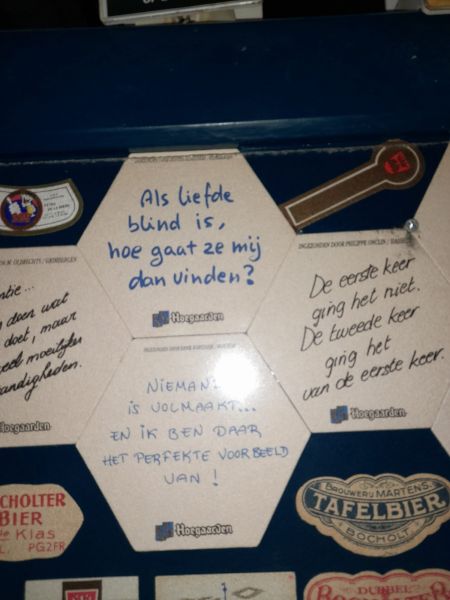 Als liefde
blind is,
hoe gaat ze mij
dan vinden?
Hoegaarden
INGEZONDEN DOOR PHILIPPE ONCLIN /
De eerste keer
ging het niet.
De tweede keer
ging het
van de eerste keer.
Hoegaarden
OLBRECHTS / GRIMBERGEN
doen wat
doet, maar
Hoegaarden
INGEZONDEN DOOR
IS VOLMAAKT...
EN IK BEN DAAR
HET PERFEKTE VOORBEELD
VAN!
Hoegaarden
BIER
Klas
PG2FR
BROUWERIJ MARTENS
TAFELBIER
BOCHOLT
DUBBEL